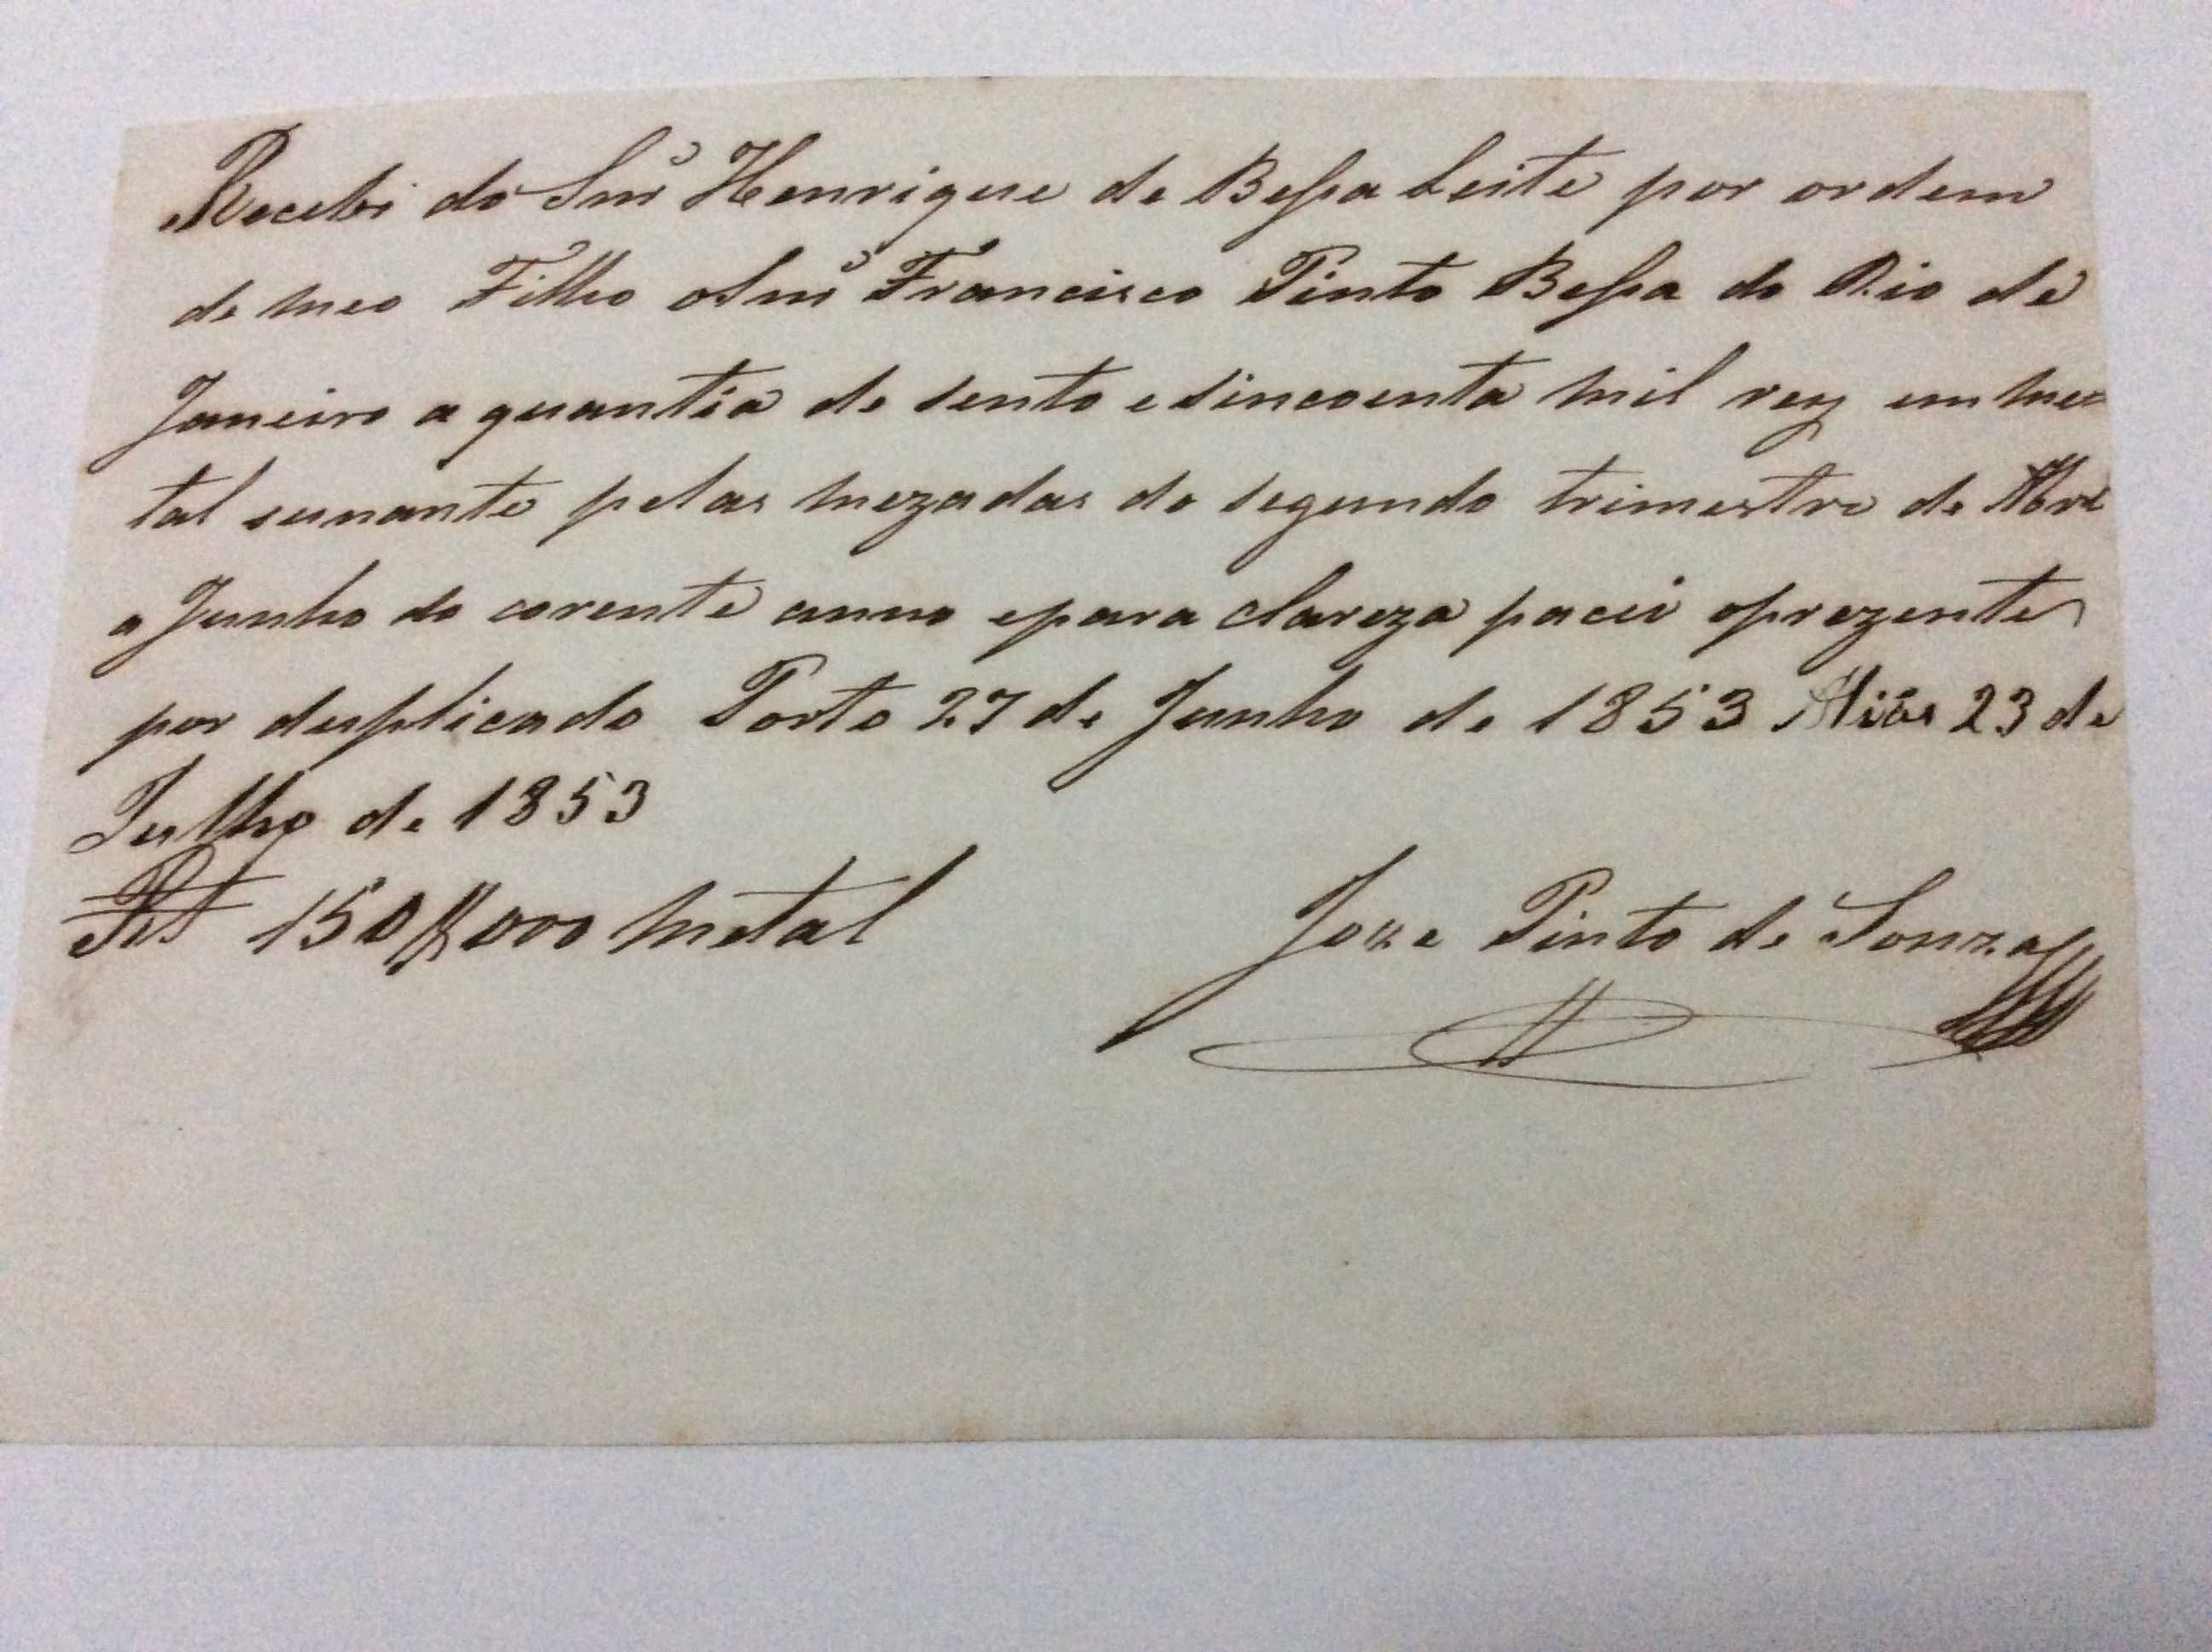 Recebi do Snr Henrique de Bessa Leite por ordem
de meo Filho o Snr Francisco Pinto Bessa do Rio de
Janeiro a quantia de sento e sincoenta mil reis em me=
tal sunante pelas mezadas do segundo trimestre de Abril
a Junho do corente anno e para clareza pacei o prezente
por duplicado Porto 27 de Junho de 1853 Aliás 23 de
Julho de 1853
Rs 150$000 metal
Joze Pinto de Souza